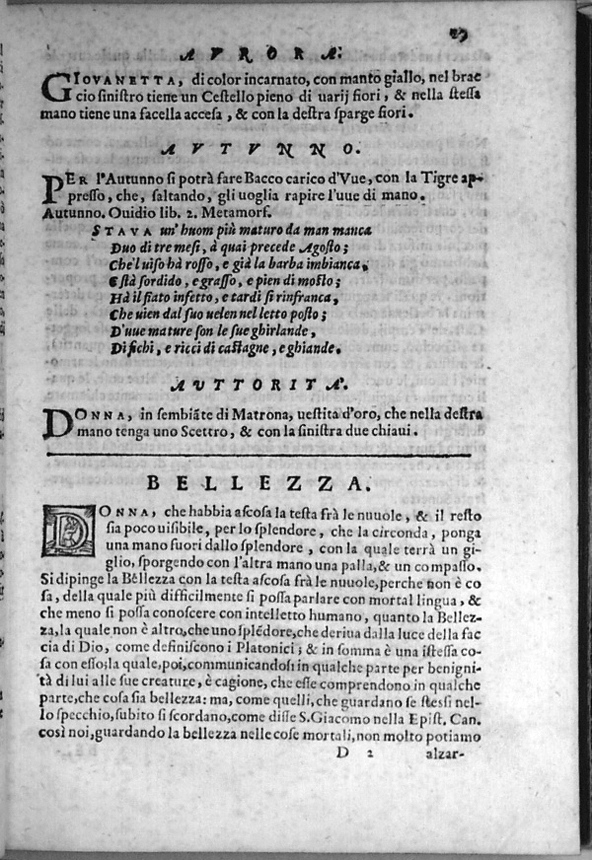 AVRORA.
GIOVANETTA, di color incarnato, con manto giallo, nel brac
cio ſiniſtro tiene un Ceſtello pieno di uarij fiori, & nella ſteſſa
mano tiene una facella acceſa, & con la deſtra ſparge fiori.
AVTVNNO.
PER l'Autunno ſi potrà fare Bacco carico d'Vue, con la Tigre ap-
preſſo, che, ſaltando, gli uoglia rapire l'uue di mano.
Autunno. Ouidio lib. 2. Metamorf.
STAVA un' huom più maturo da man manca
Duo di tre meſi, à quai precede Agoſto;
Che'l uiſo hà roſſo, e già la barba imbianca,
E ſtà ſordido, e graſſo, e pien di moſto;
Hà il fiato infetto, e tardi ſi rinfranca,
Che uien dal ſuo uelen nel letto poſto;
D'uue mature ſon le ſue ghirlande,
Di fichi, e ricci di caſtagne, e ghiande.
AVTTORITA'.
DONNA, in ſembiãte di Matrona, ueſtita d'oro, che nella deſtra
mano tenga uno Scettro, & con la ſiniſtra due chiaui.
BELLEZZA.
DONNA, che habbia aſcoſa la teſta frà le nuuole, & il reſto
ſia poco uiſibile, per lo ſplendore, che la circonda, ponga
una mano fuori dallo ſplendore, con la quale terrà un gi-
glio, ſporgendo con l'altra mano una palla,& un compaſſo.
Si dipinge la Bellezza con la teſta aſcoſa frà le nuuole,perche non è co
ſa, della quale più difficilmente ſi poſſa parlare con mortal lingua, &
che meno ſi poſſa conoſcere con intelletto humano, quanto la Bellez-
za,la quale non è altro,che uno ſplẽdore,che deriua dalla luce della fac
cia di Dio, come definiſcono i Platonici; & in ſomma è una iſteſſa co-
ſa con eſſo;la quale,poi,communicandoſi in qualche parte per benigni-
tà di lui alle ſue creature, è cagione, che eſſe comprendono in qualche
parte,che coſa ſia bellezza: ma, come quelli, che guardano ſe ſteſſi nel-
lo ſpecchio,ſubito ſi ſcordano,come diſſe S.Giacomo nella Epiſt. Can.
così noi,guardando la bellezza nelle coſe mortali,non molto potiamo
D 2 alzar-